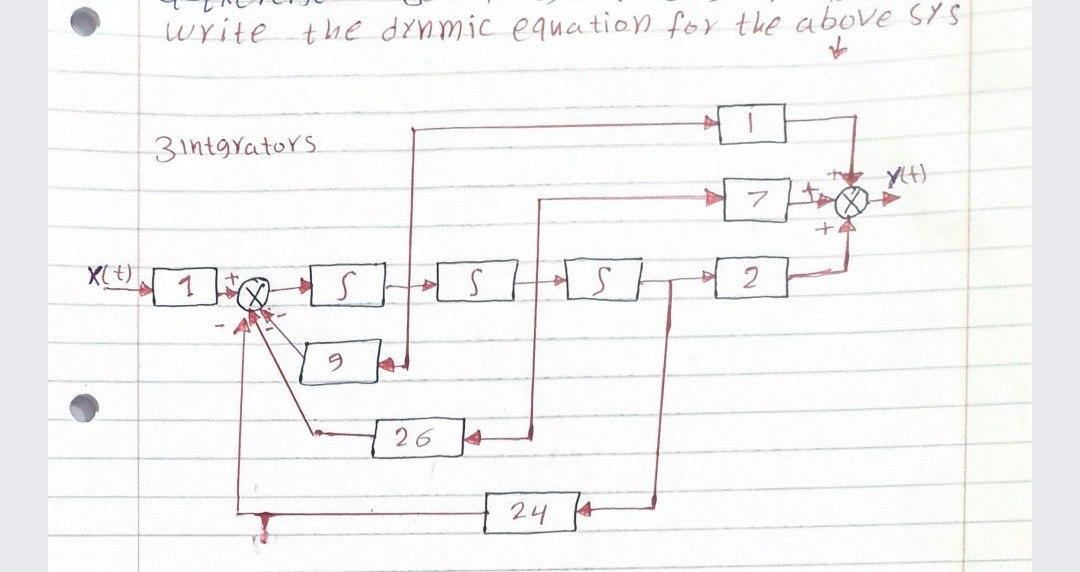 write the dynmic equation for the above sys
3 intgrators
1
7
+
+
Y(t)
+
X(t)
1
+
∫
∫
∫
2
-
-
-
9
26
24